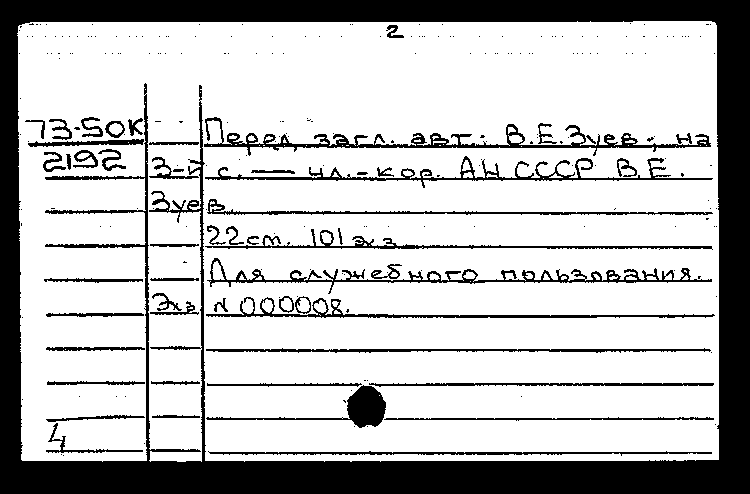 2
73-50К Перед загл. авт.: В.Е.Зуев; на
2192 3-й с. — чл.-кор. АН СССР В.Е.
Зуев.
22см. 101 экз
Для служебного пользования.
Экз N 000008.
4